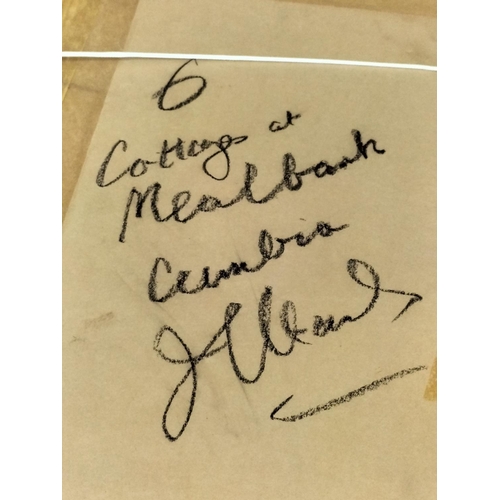 6
Cottages at
Mealbank
Cumbria